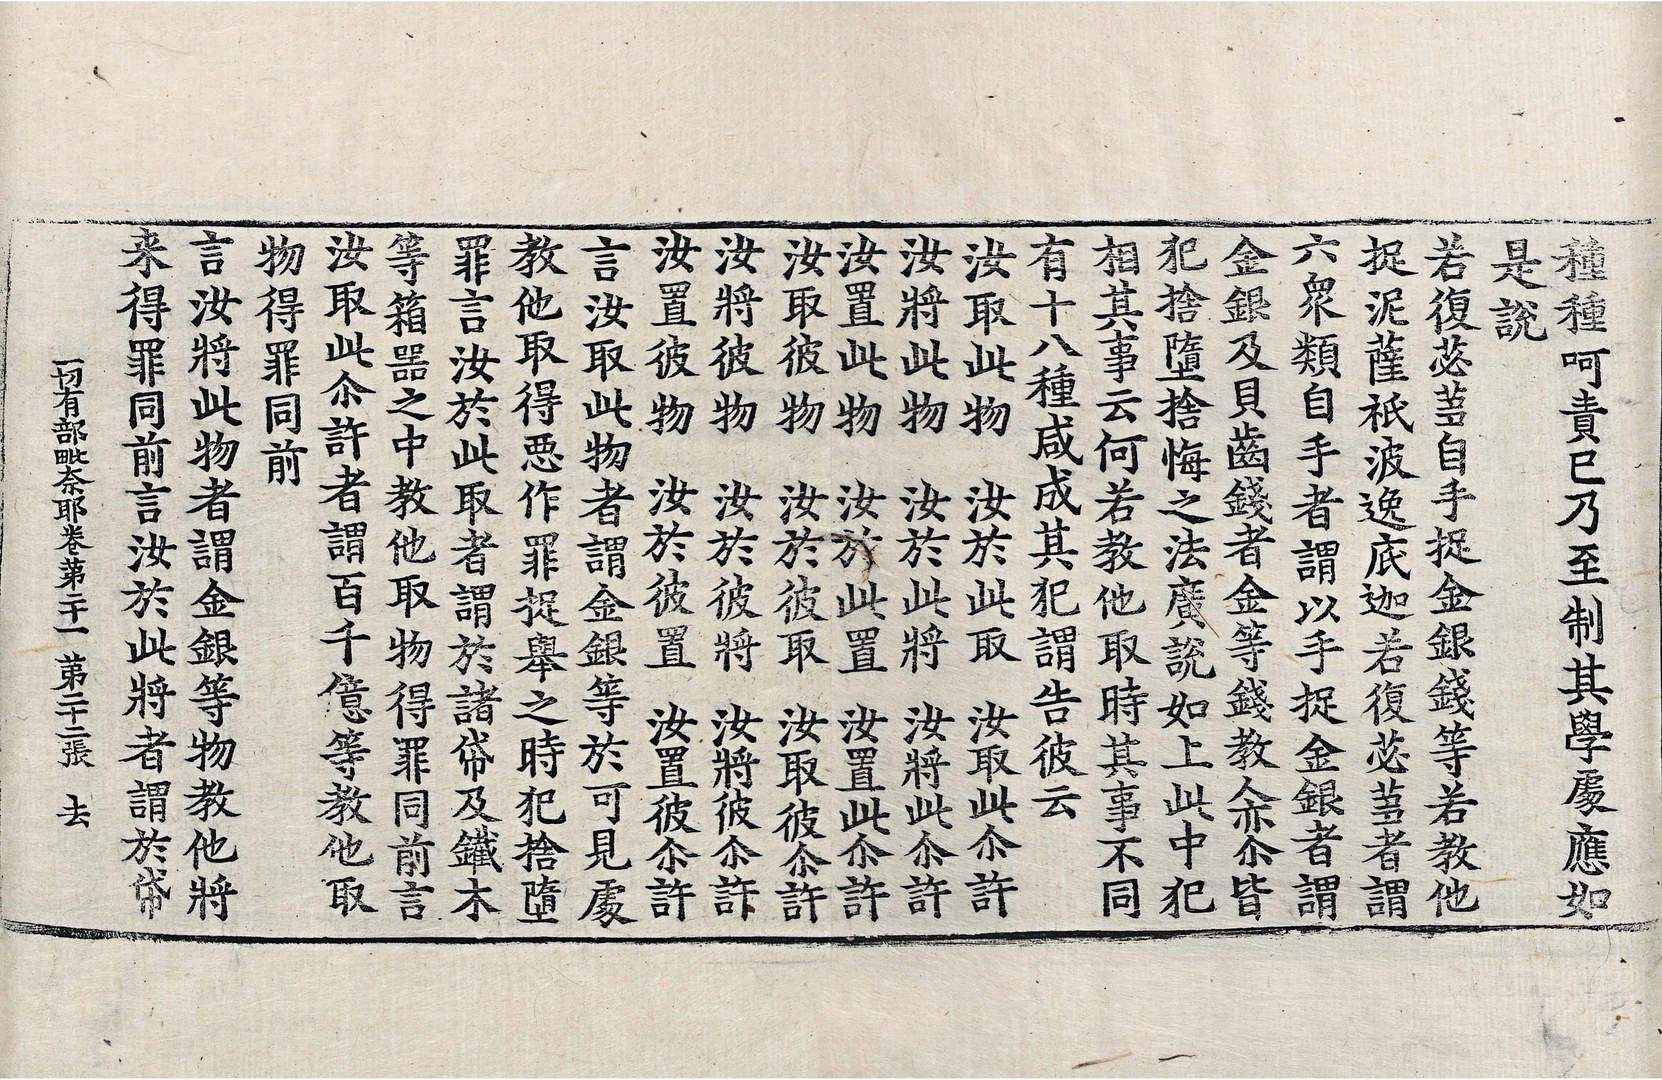 種種呵責已乃至制其學處應如
是說
若復苾芻自手捉金銀錢等若教他
捉泥薩祇波逸底迦若復苾芻者謂
六衆類自手者謂以手捉金銀者謂
金銀及貝齒錢者金等錢教人亦尒皆
犯捨墮捨悔之法廣說如上此中犯
相其事云何若教他取時其事不同
有十八種咸成其犯謂告彼云
汝取此物　汝於此取　汝取此尒許
汝將此物　汝於此將　汝將此尒許
汝置此物　汝於此置　汝置此尒許
汝取彼物　汝於彼取　汝取彼尒許
汝將彼物　汝於彼將　汝將彼尒許
汝置彼物　汝於彼置　汝置彼尒許
言汝取此物者謂金銀等於可見處
教他取得悪作罪捉舉之時犯捨墮
罪言汝於此取者謂於諸帒及鐵木
等箱器之中教他取物得罪同前言
汝取此尒許者謂百千億等教他取
物得罪同前
言汝將此物者謂金銀等物教他將
来得罪同前言汝於此將者謂於帒
一切有部毗奈耶卷第二十一　第二十二張　去